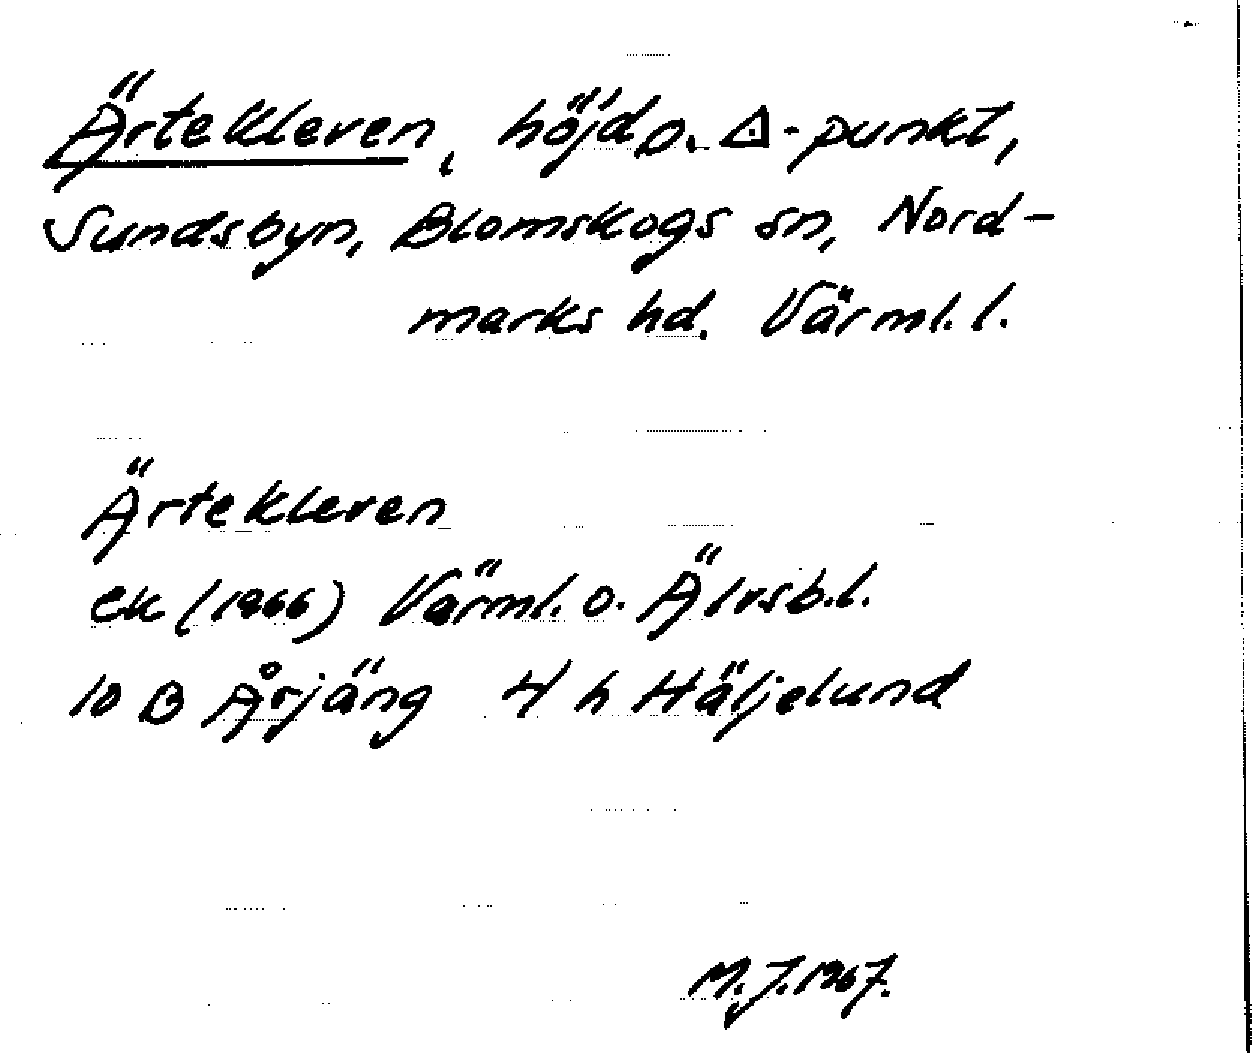 Ärtekleven, höjd o. △-punkt,
Sundsbyn, Blomskogs sn, Nord-
marks hd. Värml. l.
Ärtekleven
ek (1966) Värml. o. Älvsb.l.
10 B Årjäng 4 h Häljelund
M.J.1967.